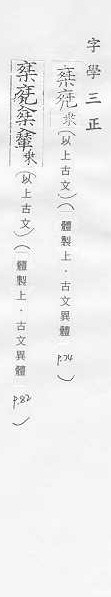 字學三正
乘(以上古文)(體製上.古文異體 p.74)
乘(以上古文)(體製上.古文異體 p.82)